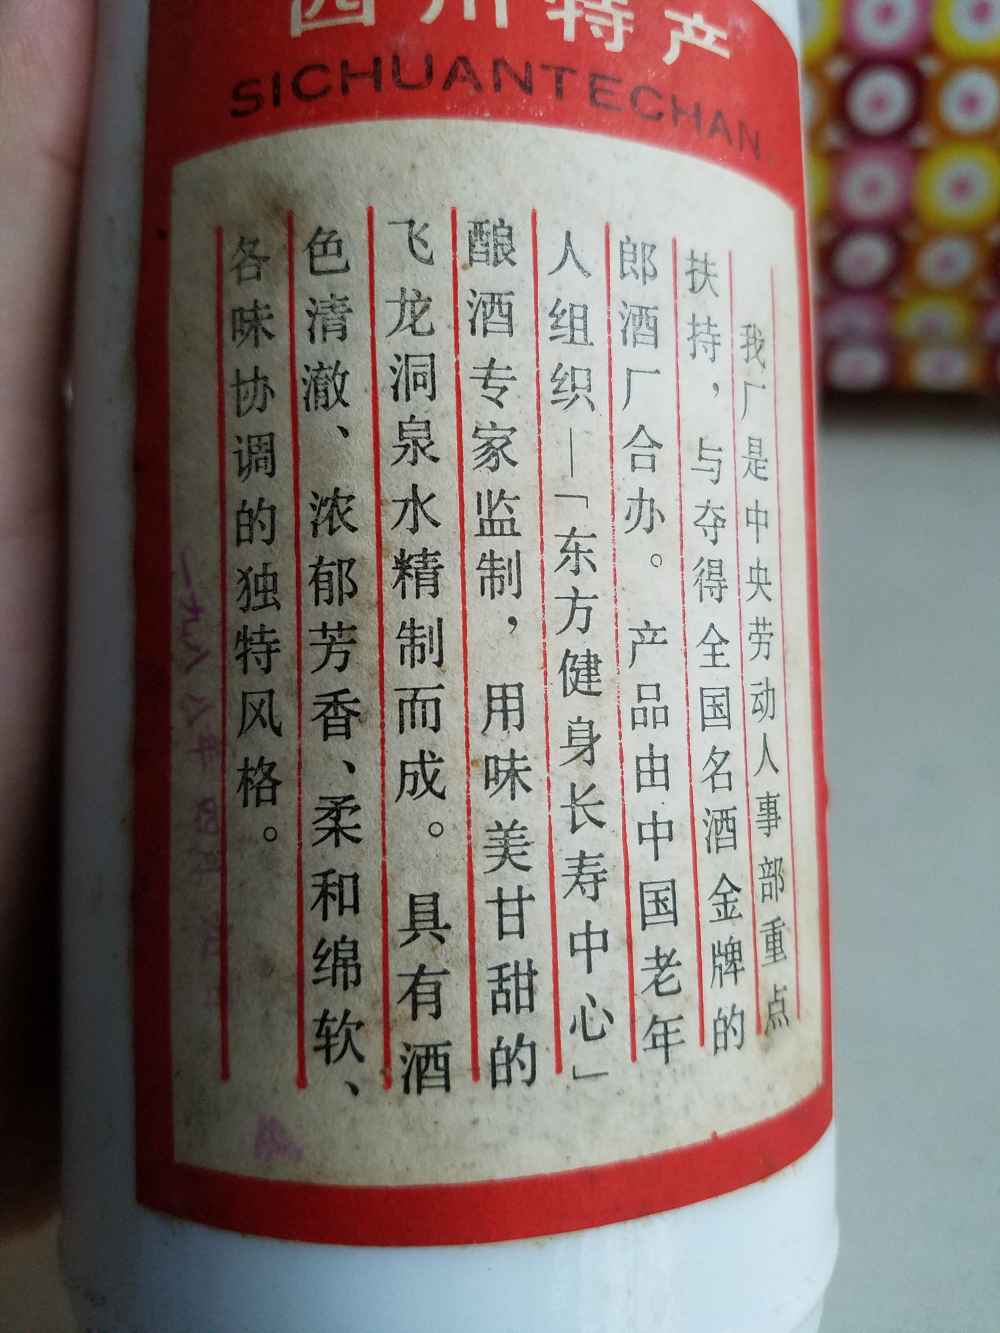 四川特产
SICHUANTECHAN
我厂是中央劳动人事部重点
扶持，与夺得全国名酒金牌的
郎酒厂合办。产品由中国老年
人组织—「东方健身长寿中心」
酿酒专家监制，用味美甘甜的
飞龙洞泉水精制而成。具有酒
色清澈、浓郁芳香、柔和绵软、
各味协调的独特风格。
一九八八年